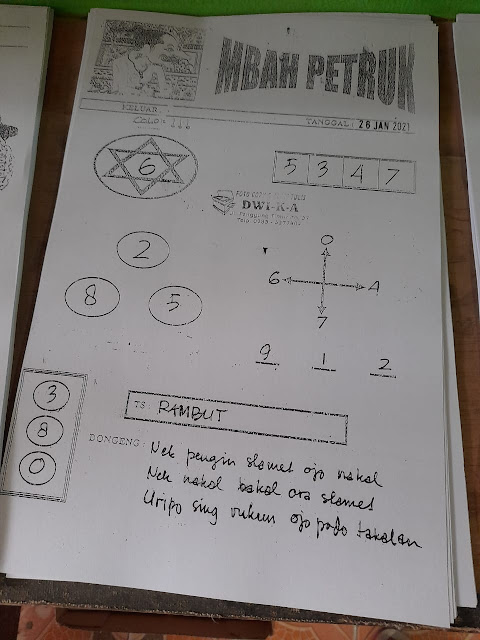 MBAH PETRUK
KELUAR :
TANGGAL : 26 JAN 2021
COLO :
6
5 3 4 7
DWI-K-A
2
8 5
0
6 4
7
9 1 2
3
8
0
TS : RAMBUT
DONGENG : Nek pengin slamet ojo nakal
Nek nakal bakal ora slamet
Uripo sing rukun ojo podo tukaran